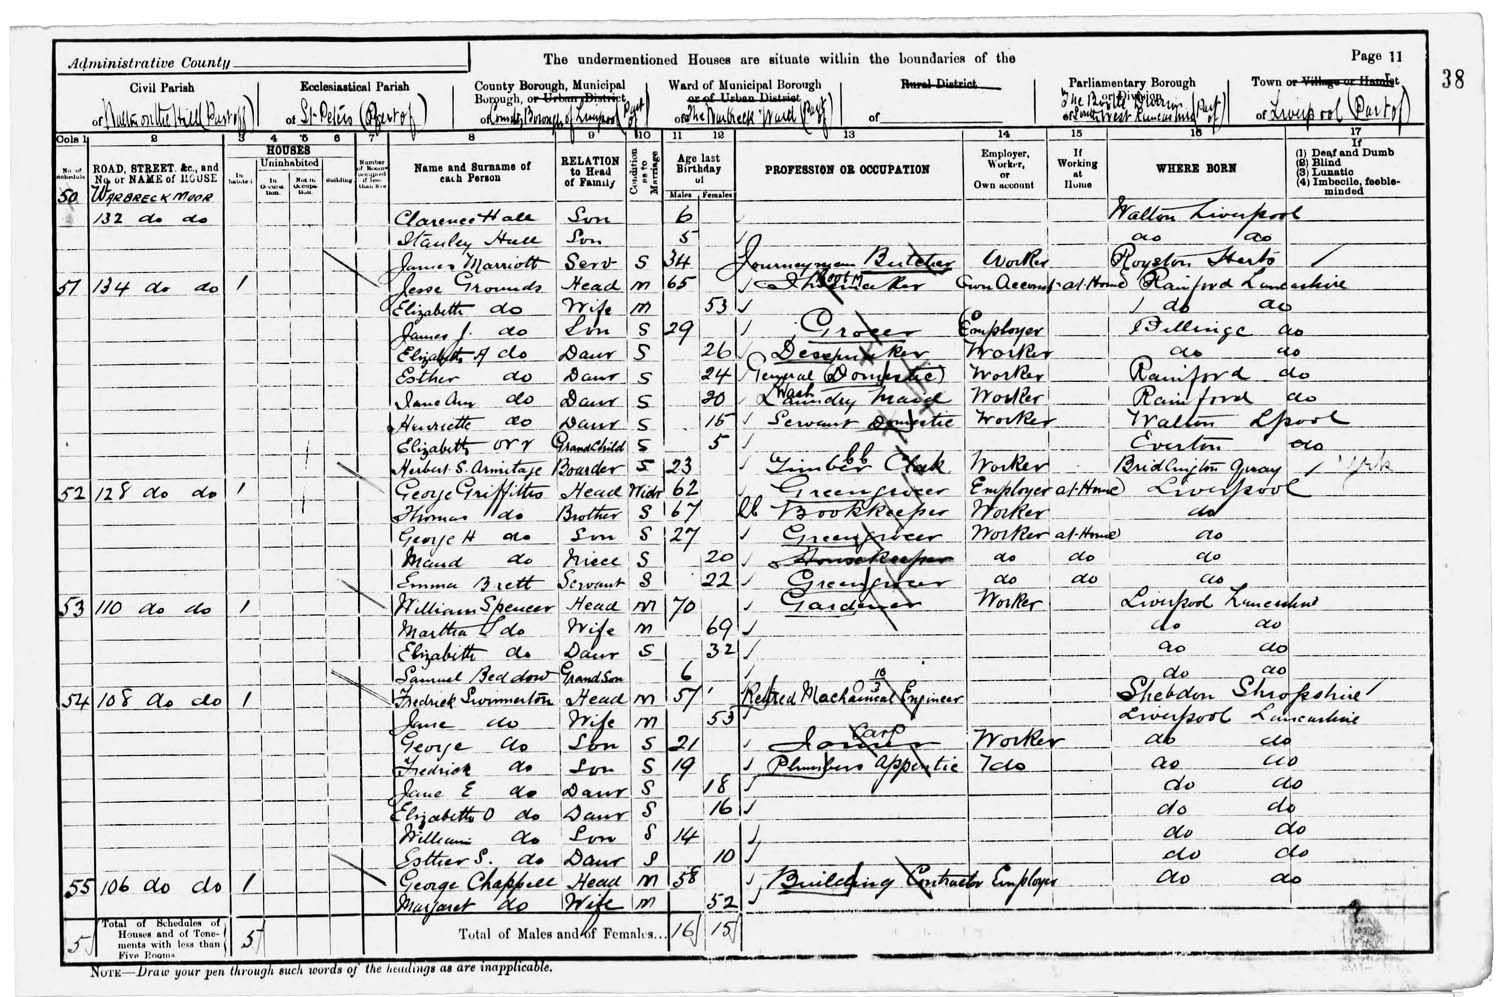 Administrative County
The undermentioned Houses are situate within the boundaries of the
Page 11
38
Civil Parish
of Walton on the Hill (Part of)
Ecclesiastical Parish
of St Peters (Part of)
County Borough, Municipal Borough, or Urban District
of County Borough of Liverpool (Part of)
Ward of Municipal Borough or of Urban District
of The Warbreck Ward (Part)
Rural District
of
Parliamentary Borough or Division
of South West Lancashire (Part of)
Town or Village or Hamlet
of Liverpool (Part of)
Cols 1 2 3 4 5 6 7 8 9 10 11 12 13 14 15 16 17
No. of Schedule
ROAD, STREET, &c., and No. or NAME of HOUSE
HOUSES
Inhabited
Uninhabited
In Occupation.
Not in Occupation.
Building
Number of Rooms occupied if less than five
Name and Surname of each Person
RELATION to Head of Family
Condition as to Marriage
Age last Birthday of
Males Females
PROFESSION OR OCCUPATION
Employer, Worker, or Own account
If Working at Home
WHERE BORN
If
(1) Deaf and Dumb
(2) Blind
(3) Lunatic
(4) Imbecile, feeble-minded
50 WARBRECK MOOR
132 do do Clarence Hall Son 6 Walton Liverpool
Stanley Hall Son 5 do do
James Marriott Serv S 34 Journeyman Butcher Worker Royston Herts
51 134 do do 1 Jesse Grounds Head M 65 Shoemaker Own Account at Home Rainford Lancashire
Elizabeth do Wife M 53 do do
James J. do Son S 29 Grocer Employer Billinge do
Elizabeth A do Daur S 26 Dressmaker Worker do do
Esther do Daur S 24 General (Domestic) Worker Rainford do
Jane Ann do Daur S 20 Wash Laundry Maid Worker Rainford do
Henriette do Daur S 15 Servant Domestic Worker Walton Lpool
Elizabeth Orr GrandChild S 5 Everton do
Herbert S. Armitage Boarder S 23 Timber Clerk Worker Bridlington Quay
52 128 do do 1 George Griffiths Head Widr 62 Greengrocer Employer at Home Liverpool
Thomas do Brother S 67 Bookkeeper Worker do
George H do Son S 27 Greengrocer Worker at Home do
Maud do Niece S 20 Housekeeper do do do
Emma Brett Servant S 22 Greengrocer do do do
53 110 do do 1 William Spencer Head M 70 Gardener Worker Liverpool Lancashire
Martha do Wife M 69 do do
Elizabeth do Daur S 32 do do
Samuel Beddow GrandSon 6 do do
54 108 do do 1 Fredrick Swinnerton Head M 51 Retired Machanical Engineer Shebdon Shropshire
Jane do Wife M 53 Liverpool Lancashire
George do Son S 21 Joiner Worker do do
Fredrick do Son S 19 Plumbers Appentic do do do
Jane E do Daur S 18 do do
Elizabeth O do Daur S 16 do do
William do Son S 14 do do
Esther S. do Daur S 10 do do
55 106 do do 1 George Chappell Head M 58 Building Contractor Employer do do
Margaret do Wife M 52
5 Total of Schedules of Houses and of Tenements with less than Five Rooms 5 Total of Males and of Females... 16 15
NOTE—Draw your pen through such words of the headings as are inapplicable.